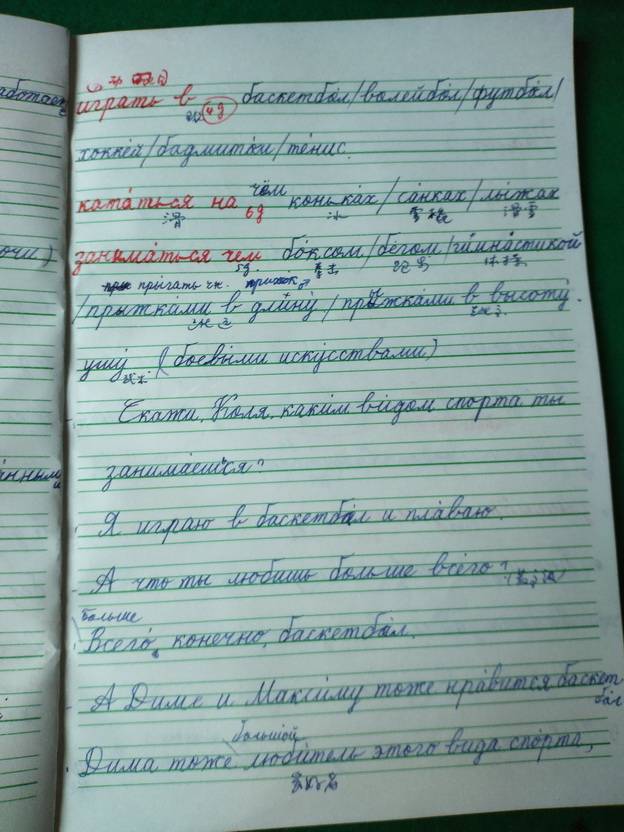 аботает
играть в баскетбо́л/волейбо́л/футбо́л/
4g
хоккей/бадминто́н/те́нис.
чём
ката́ться на конька́х/са́нках/лы́жах
滑 6g 冰 雪橇 滑雪
очи)
занима́ться чем бо́ксом/бе́гом/гимна́стикой
5g. 拳击 跑步 体操
прыгать чн. прыжок
/прыжка́ми в длину́/прыжка́ми в высоту́.
跳远 跳高
ушу́ (боевы́ми иску́сствами)
武术
Скажи, Коля, каки́м ви́дом спорта ты
занима́ешься?
Я играю в баскетбо́л и пла́ваю.
- А что ты любишь больше всего́?
Больше
Всего́, конечно, баскетбо́л.
- А Диме и Макси́му тоже нра́вится баскет-
бо́л
большо́й
Дима тоже люби́тель этого вида спо́рта,
爱好者